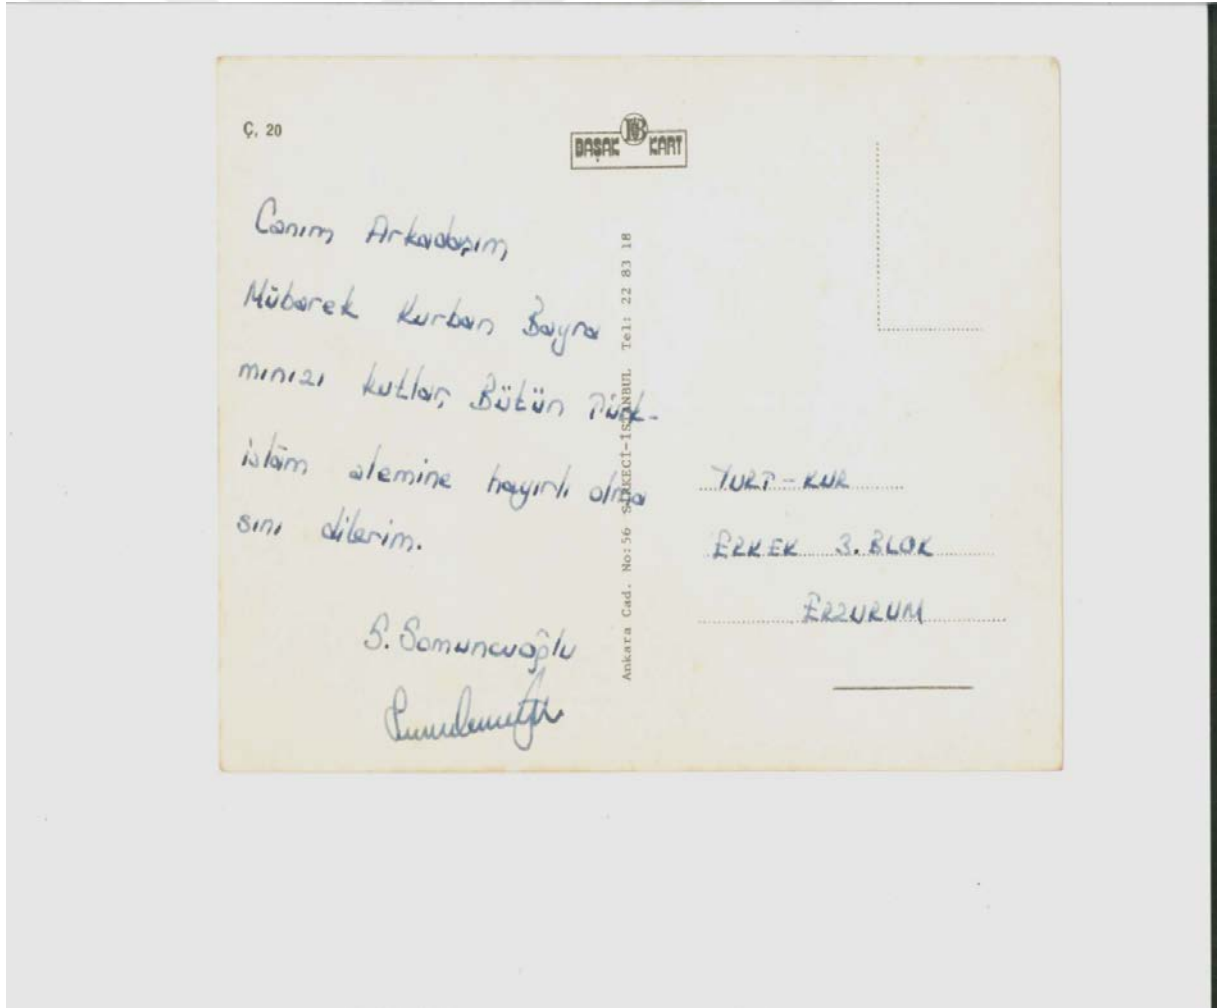 Ç. 20
BAŞAK KART
Canım Arkadaşım
Mübarek Kurban Bayra
mınızı kutlar, Bütün Türk-
islâm alemine hayırlı olma
sını dilerim.
S. Somuncuoğlu
Ankara Cad. No:56 SİRKECİ-İSTANBUL Tel: 22 83 18
YURT-KUR
ERKEK 3. BLOK
ERZURUM